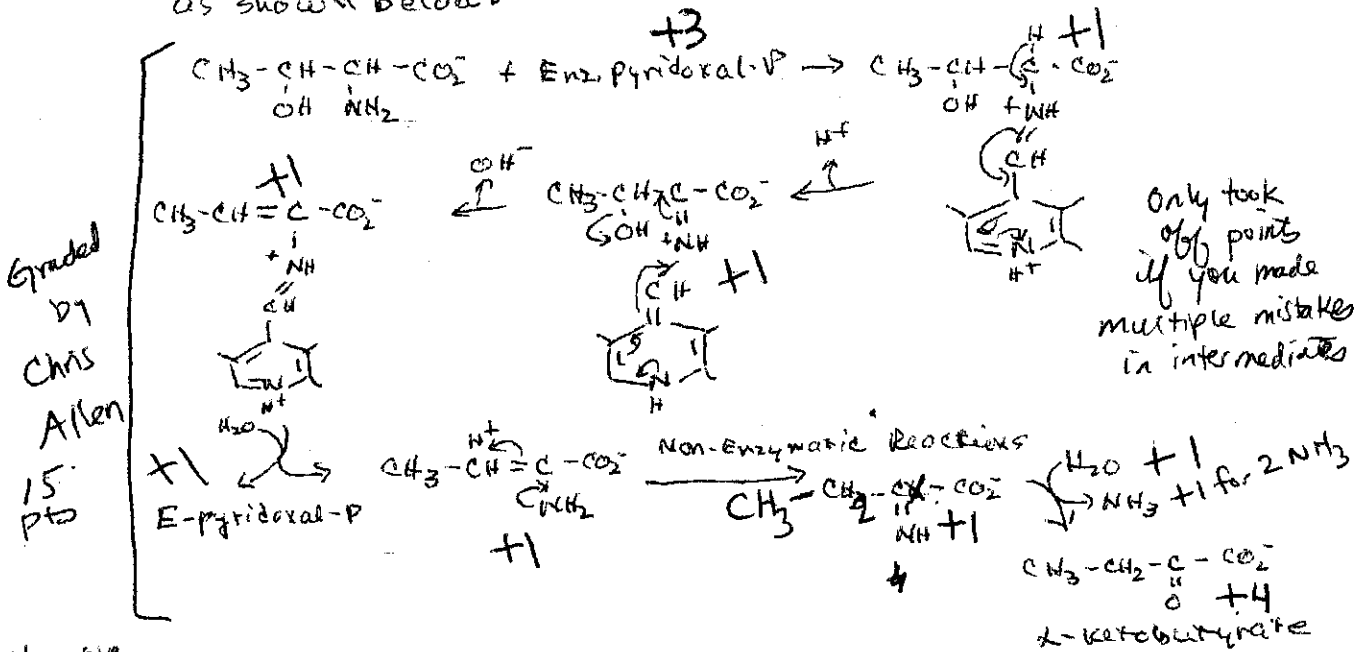 as shown below
+3
CH3-CH-CH-CO2- + Enz. pyridoxal-P → CH3-CH-C-CO2-
H +1
OH NH2
OH +NH
CH
N
H+
H+
OH-
+1
CH3-CH=C-CO2-
+NH
CH
N
H+
CH3-CH-C-CO2-
OH +NH
CH +1
N
H
only took
off points
if you made
multiple mistakes
in intermediates
Graded
by
Chris
Allen
15
pts
H2O
+1
E-pyridoxal-P
H+
CH3-CH=C-CO2-
NH2
+1
Non-Enzymatic Reactions
CH3-CH2-C-CO2-
NH +1
H2O +1
NH3 +1 for 2 NH3
CH3-CH2-C-CO2-
O +4
α-ketobutyrate